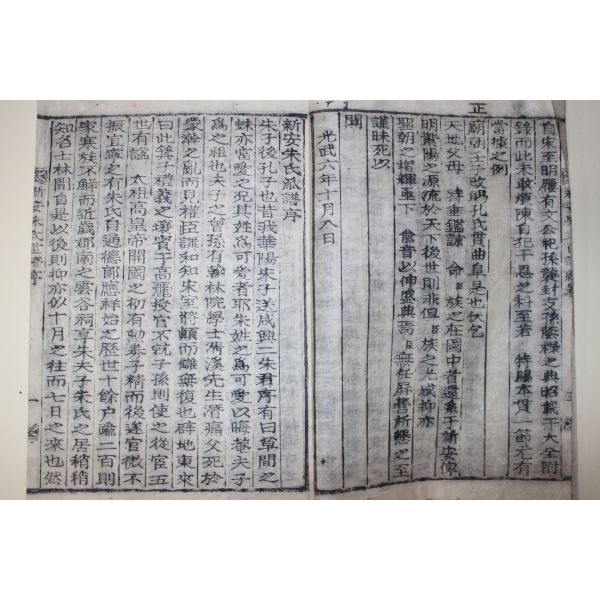 自宋至明屢有文公祀孫襲封支孫蔭祿之典昭載于大全附
錄而此未敢煩陳自犯干恩之科至若 特賜本貫一節尤有
當據之例
正廟朝壬子改咀孔氏貫曲阜是也伏乞
天地父母 特垂鑑諒 命臣族之在國中者還系于新安俾
明紫陽之源流於天下後世則非但臣族之光感抑亦
聖朝之增輝垂下 俞音以伸盛典焉臣無任屏營祈懇之至
謹昧死以
聞
光武六年十月八日
新安朱氏派譜序
朱子後孔子也昔我華陽朱子送咸興二朱君序有曰草間之
蛛亦當愛之况其姓爲可愛者耶朱姓之爲可愛以晦菴夫子
爲之祖也夫子之曾孫有翰林院學士淸溪先生潛痛父死於
蒙瀚之亂而見權臣講和知宋室將顚而難無復也辟地東來
曰此箕子禮義之壤賓于高麗授官不就子孫則使之從官五
世有謚 太祖高皇帝開國之初有勳券子精而後遂官微不
振宜寧之有朱氏自通德郞應祥始之歷世十餘户踰二百則
家寒族不鮮而近歲郡南之雲谷祠享朱夫子朱氏之居稍稍
知名士林間自是以後則抑亦似十月之往而七日之來也然
新安朱氏 譜序 一